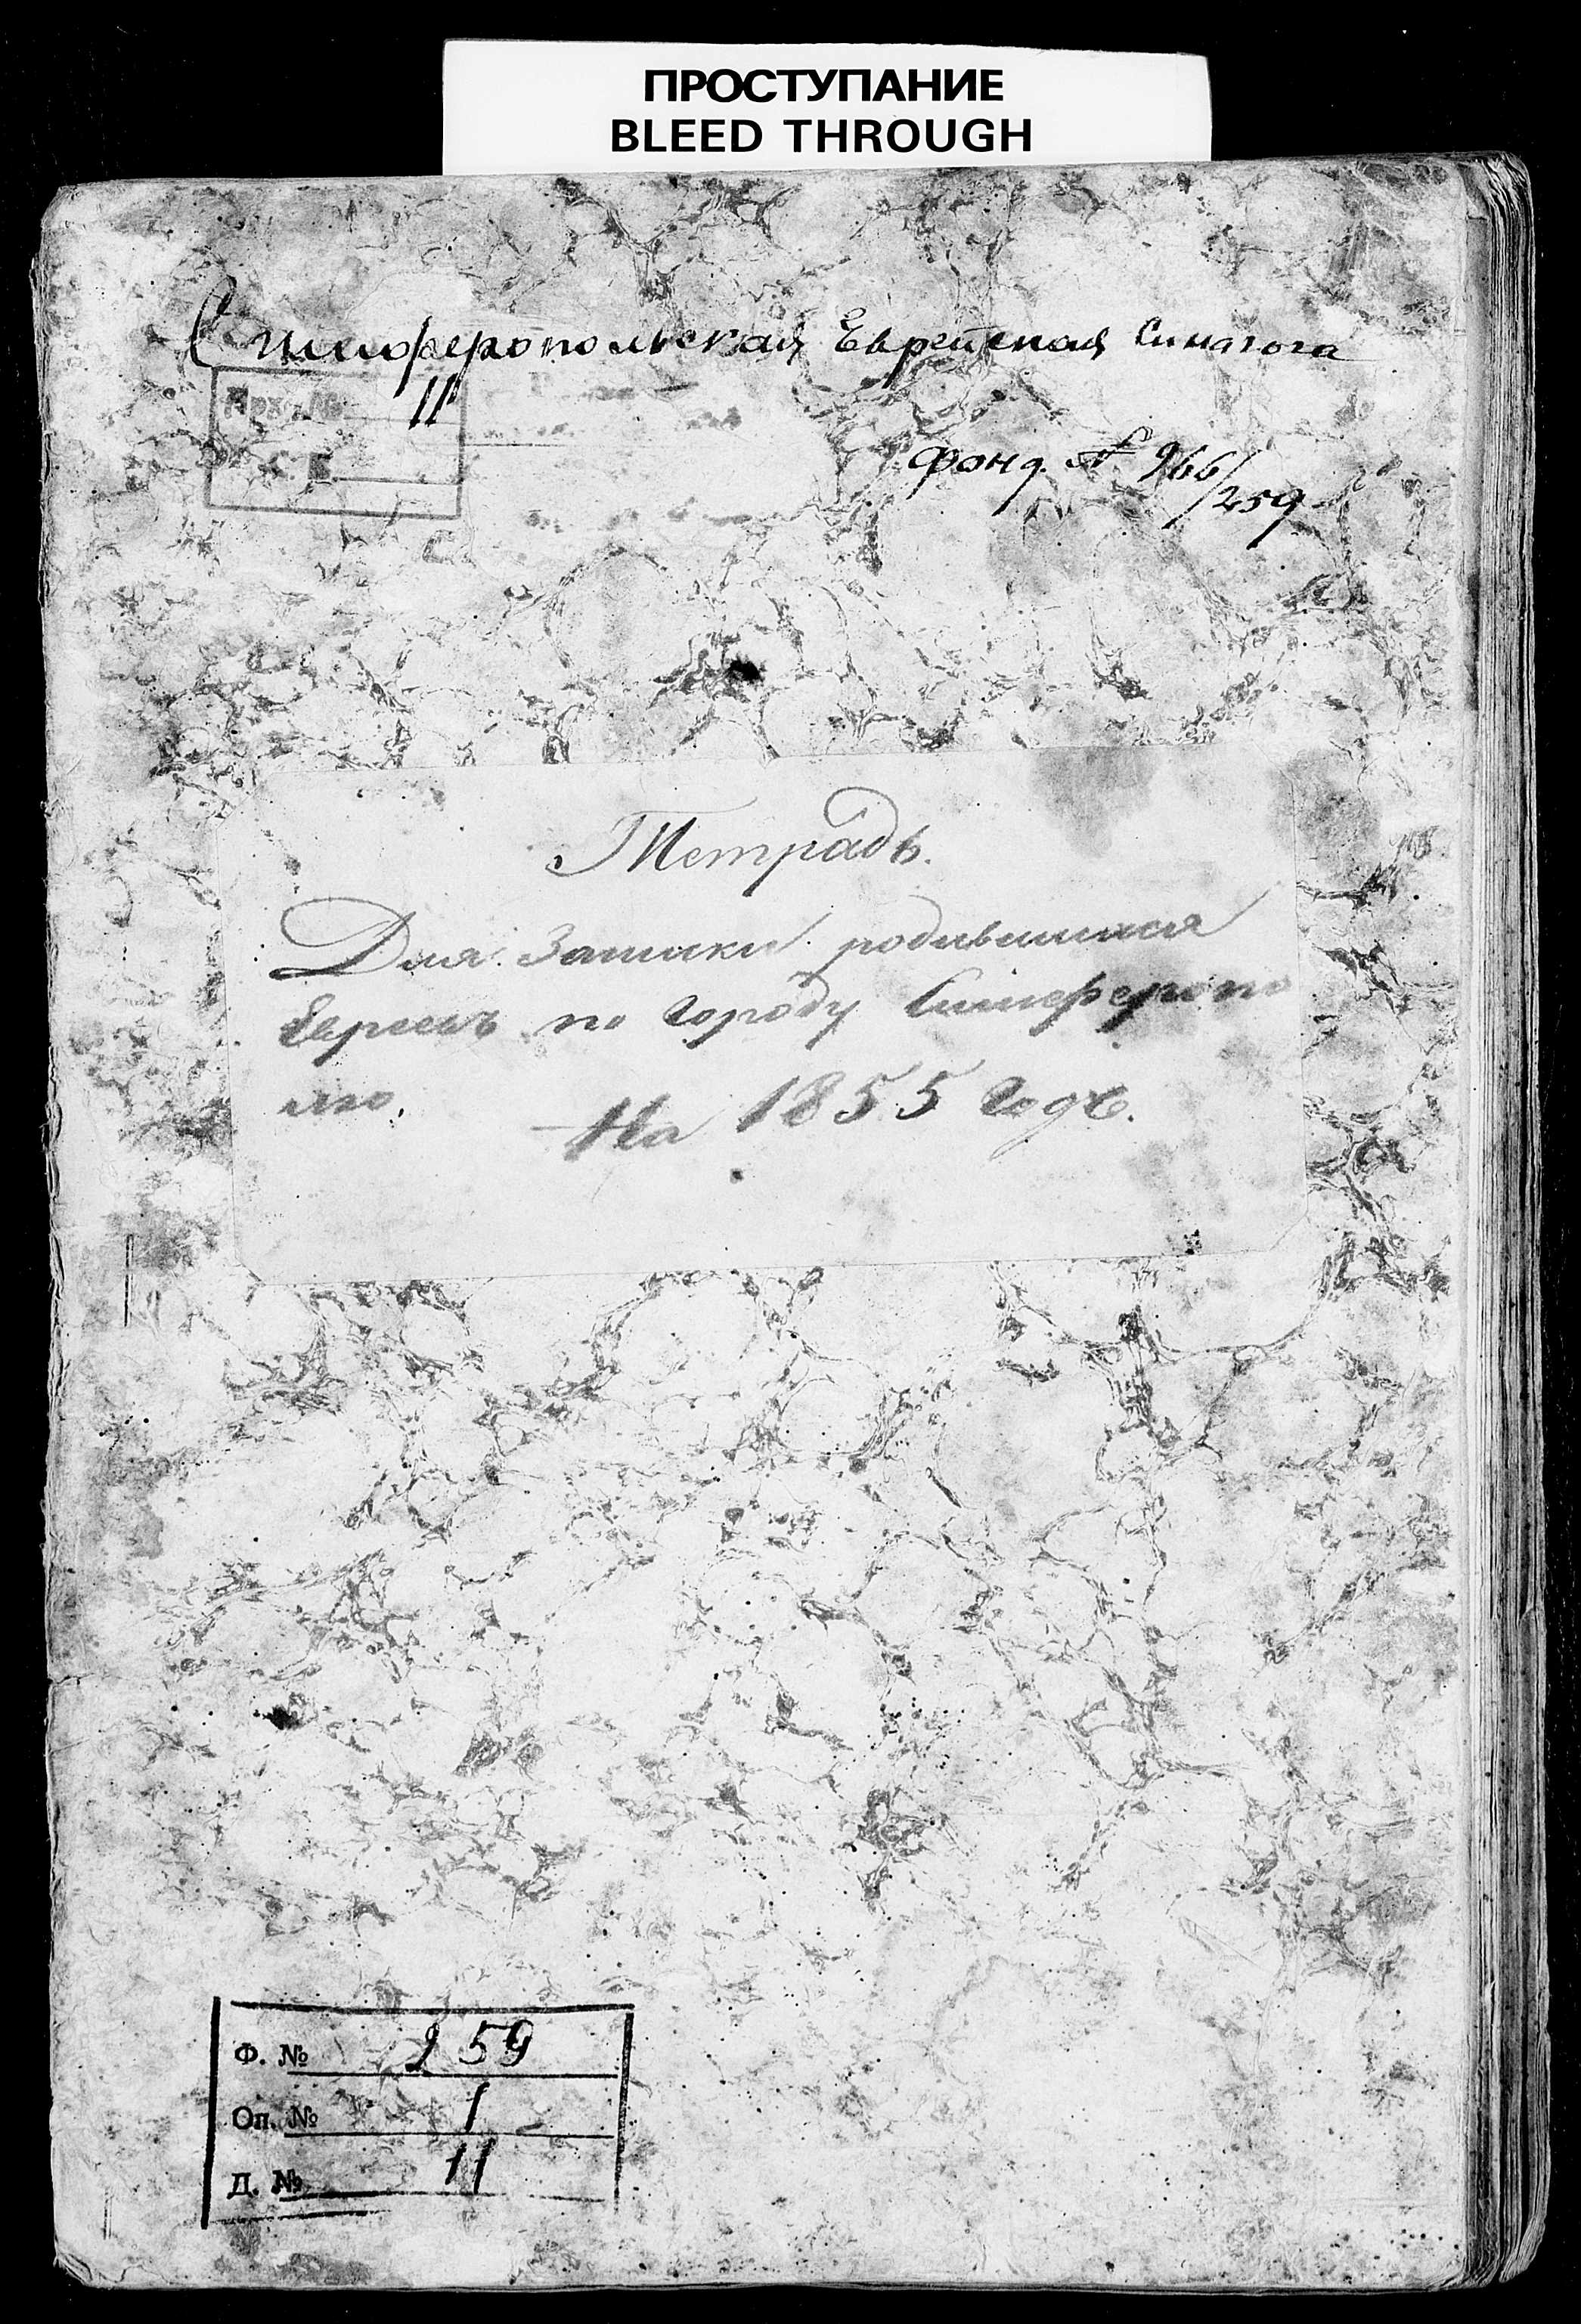 ПРОСТУПАНИЕ
BLEED THROUGH
Симферопольская Еврейская Синагога
Арх. № 11
фонд. № 966/259
Тетрадь.
Для Записки родившихся
Евреевъ по городу Симферопо
лю.
На 1855 годъ.
Ф. № 259
Оп. № 1
Д. № 11